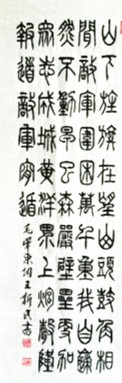 山下旌旗在望山頭鼓角相
聞敵軍圍困萬千重我自巋
然不動早已森嚴壁壘更加
眾志成城黃洋界上炮聲隆
報道敵軍宵遁
毛澤東詞王民書